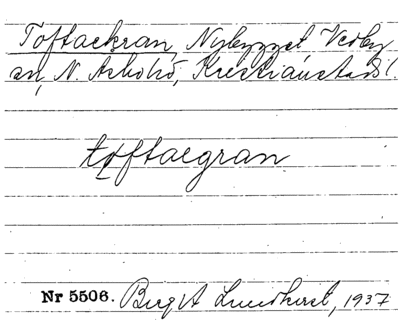 Toftaekran, Nybygget Vedby
sn, N. Åsbohd, Kristianstads l.
toftaegran
Nr 5506. Birgit Lundkvist, 1937